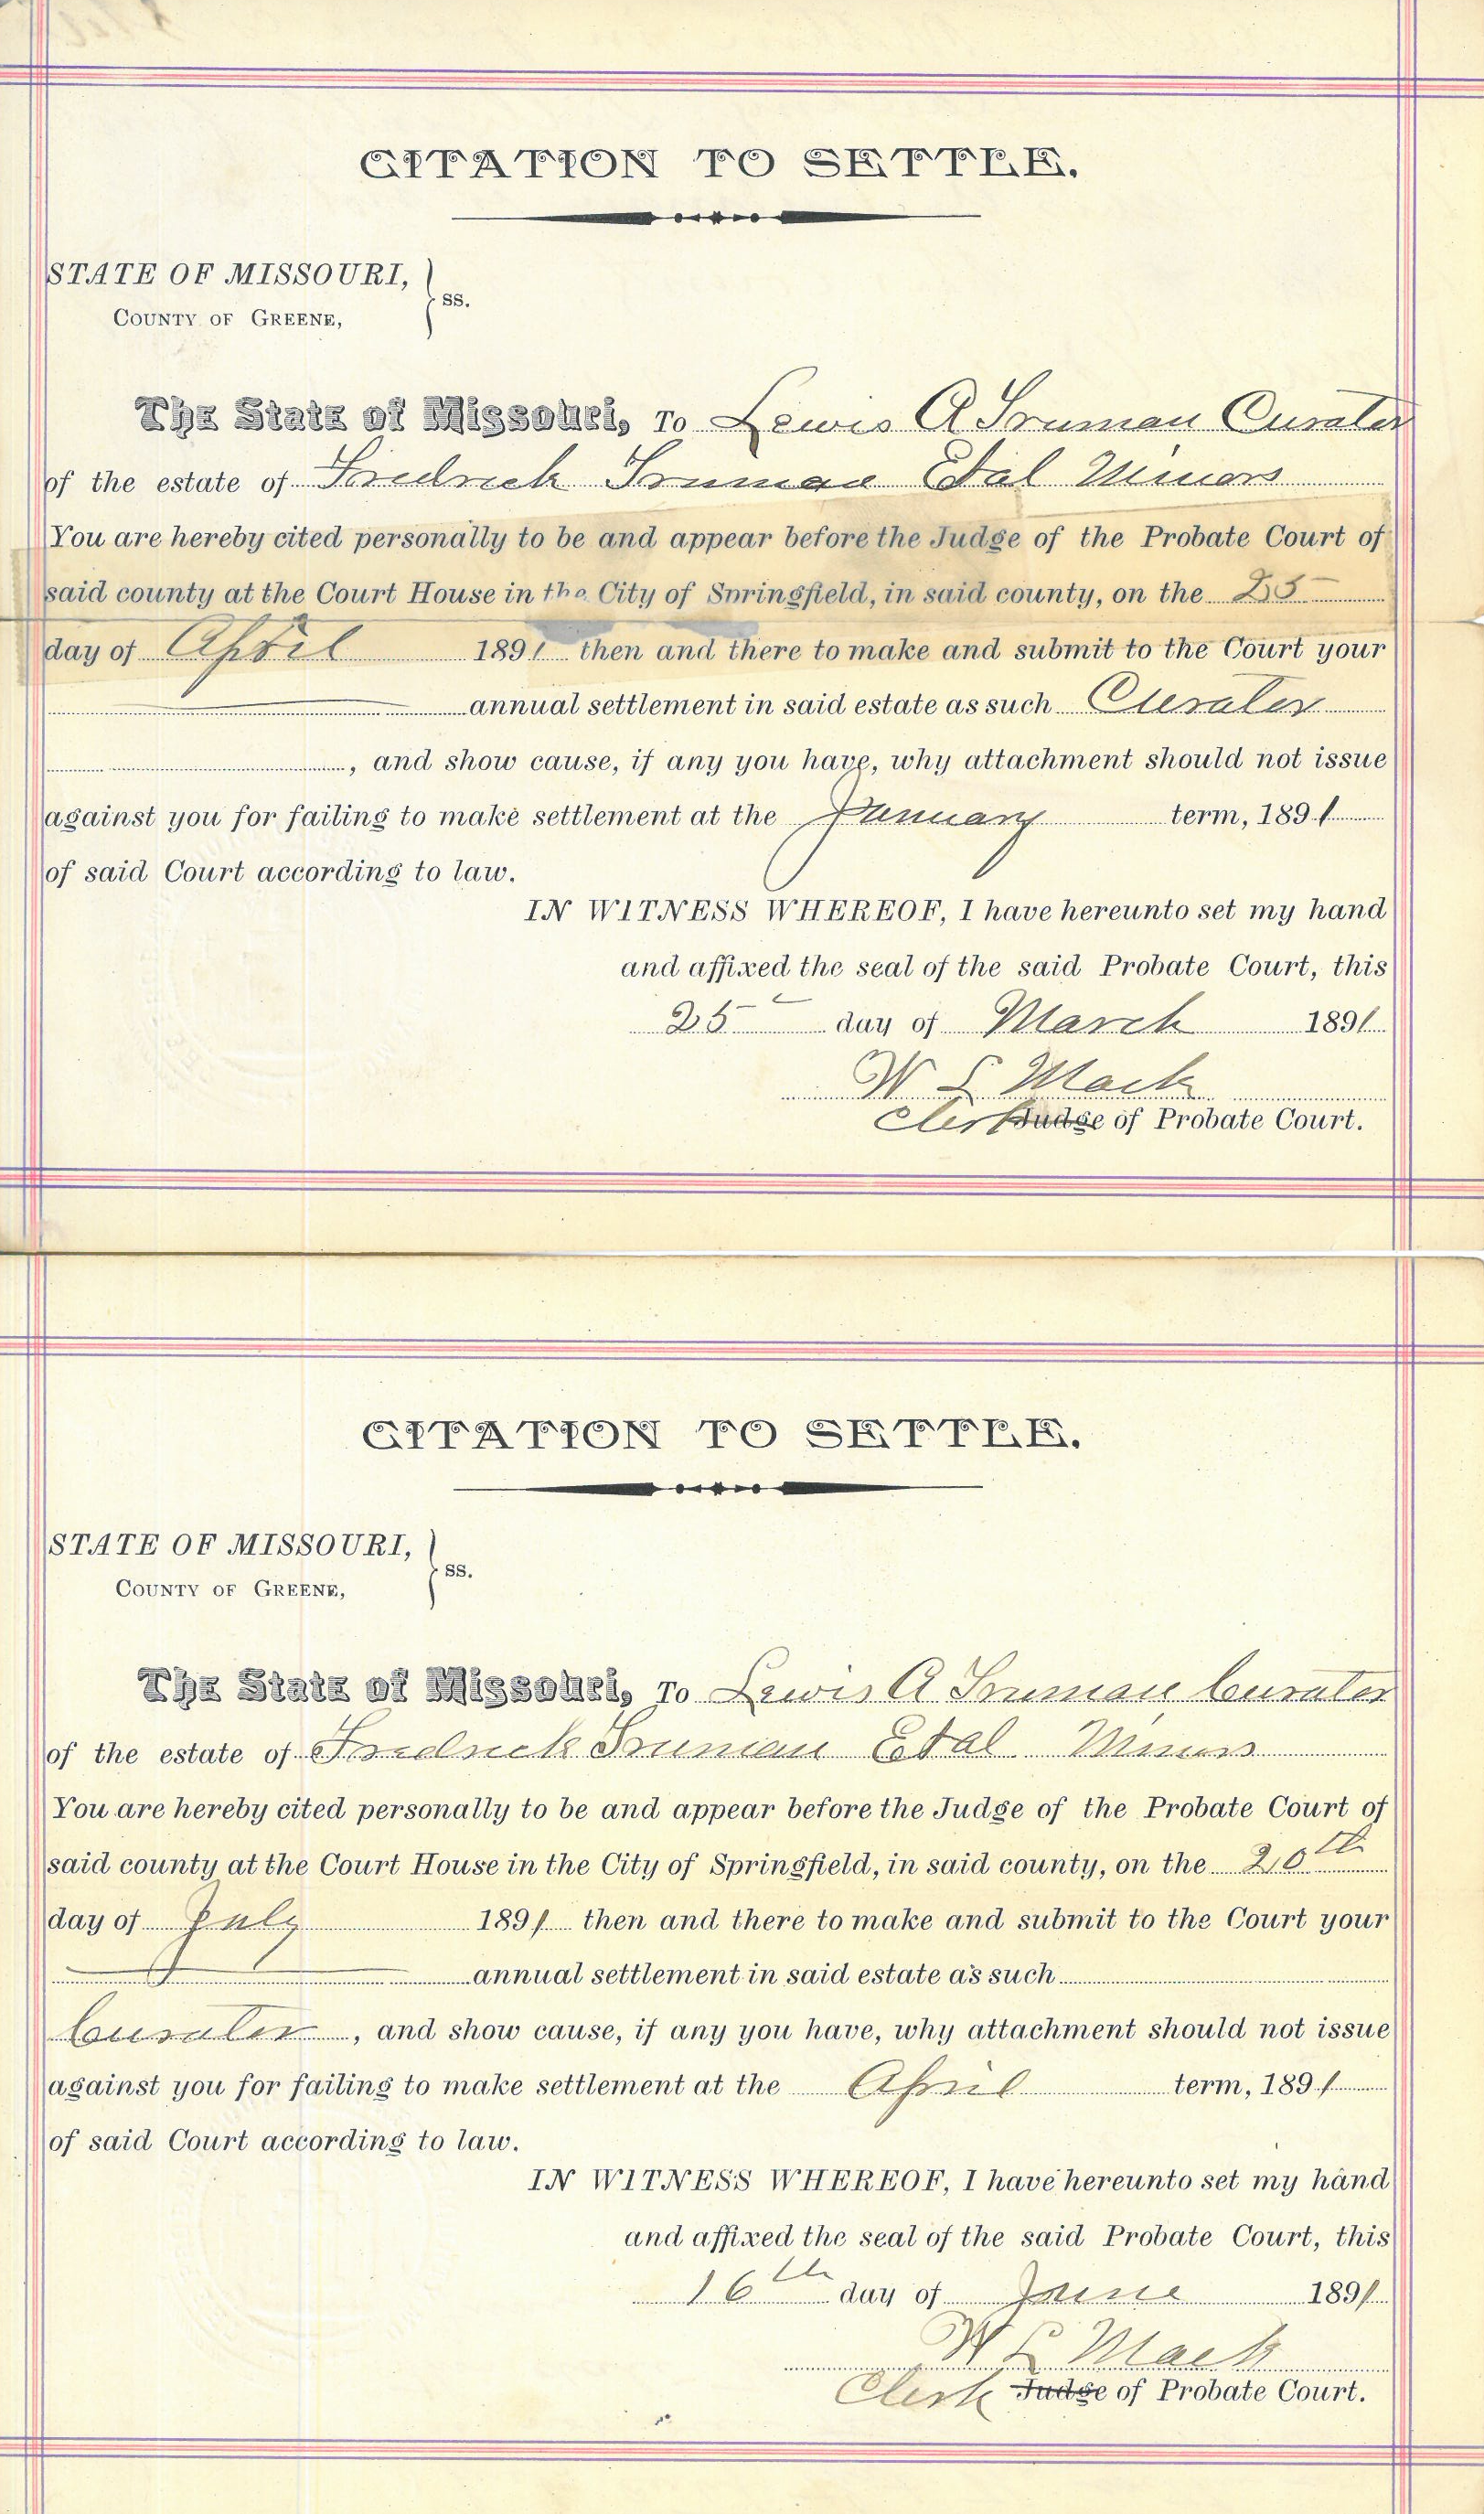 CITATION TO SETTLE.
STATE OF MISSOURI,
COUNTY OF GREENE,
ss.
The State of Missouri, To Lewis A Truman Curator
of the estate of Fredrick Truman Etal Minors
You are hereby cited personally to be and appear before the Judge of the Probate Court of
said county at the Court House in the City of Springfield, in said county, on the 25
day of April 1891 then and there to make and submit to the Court your
annual settlement in said estate as such Curator
, and show cause, if any you have, why attachment should not issue
against you for failing to make settlement at the January term, 1891
of said Court according to law.
IN WITNESS WHEREOF, I have hereunto set my hand
and affixed the seal of the said Probate Court, this
25 day of March 1891
W L Mack
Clerk Judge of Probate Court.
CITATION TO SETTLE.
STATE OF MISSOURI,
COUNTY OF GREENE,
ss.
The State of Missouri, To Lewis A Truman Curator
of the estate of Fredrick Truman Etal Minors
You are hereby cited personally to be and appear before the Judge of the Probate Court of
said county at the Court House in the City of Springfield, in said county, on the 20th
day of July 1891 then and there to make and submit to the Court your
annual settlement in said estate as such
Curator, and show cause, if any you have, why attachment should not issue
against you for failing to make settlement at the April term, 1891
of said Court according to law.
IN WITNESS WHEREOF, I have hereunto set my hand
and affixed the seal of the said Probate Court, this
16th day of June 1891
W L Mack
Clerk Judge of Probate Court.